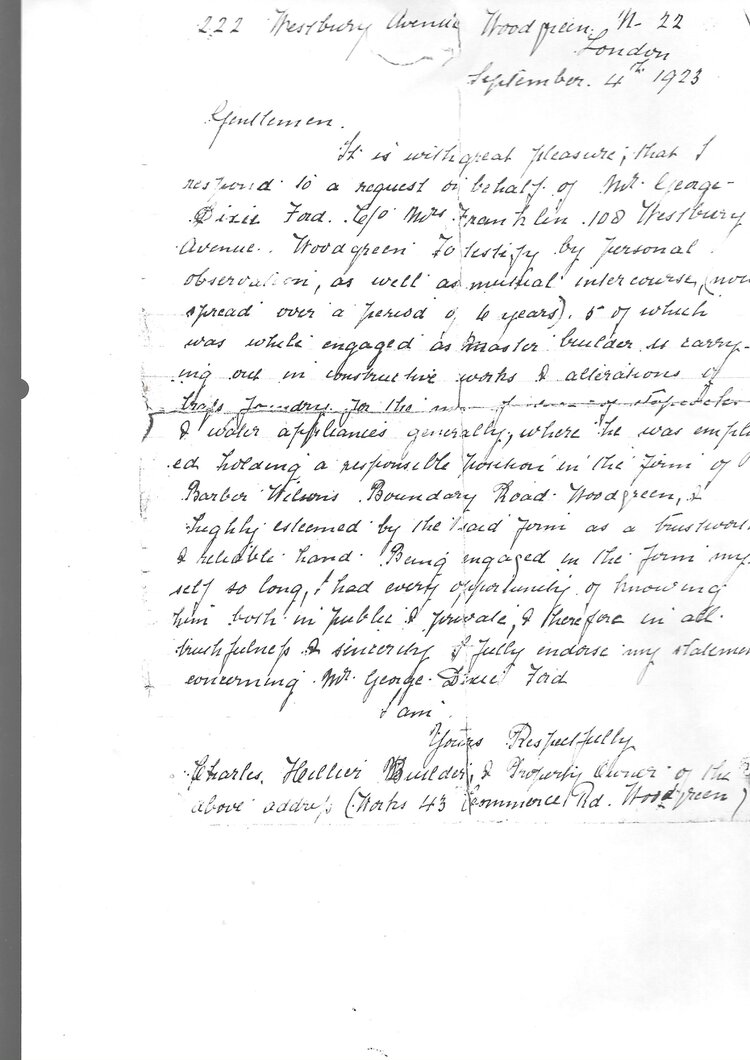 222 Westbury Avenue Woodgreen. N- 22
London
September. 4th 1923
Gentlemen.
It is with great pleasure, that I
respond to a request on behalf of Mr. George-
Dixie Ford. C/o Mrs Franklin 108 Westbury
Avenue. Woodgreen to testify by personal
observation, as well as mutual intercourse, (now
spread over a period of 6 years). 5 of which
was while engaged as Master builder is carry-
ing out in constructive works & alterations of
brass foundry for the
& water appliances generally, where he was empl
ed holding a responsible position in the firm of
Barber Wilsons Boundary Road. Woodgreen, &
highly esteemed by the said firm as a trustwor
& reliable hand. Being engaged in the firm my
self so long, I had every opportunity of knowing
him both in public & private, & therefore in all
truthfulness & sincerity I fully endorse my stateme
concerning Mr. George Dixie Ford
I am
Yours Respectfully
Charles. Hillier Builder, & Property Owner of the
above address (Works 43 Commerce Rd. Woodgreen)